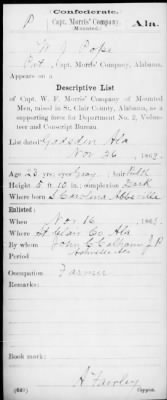 Confederate.
P
Capt. Morris' Company,
Mounted.
Ala.
W. J. Pope
Pvt, Capt. Morris' Company, Alabama.
Appears on a
Descriptive List
of Capt. W. F. Morris' Company of Mounted
Men, raised in St. Clair County, Alabama, as a
supporting force for Department No. 2, Volun-
teer and Conscript Bureau.
List dated Gadsden Ala
Nov 26, 1863.
Age 23 years; eyes Gray; hair
Height 5 ft. 10 in.; complexion Dark
Where born S Carolina Abbeville
Enlisted:
When Nov 16, 1863.
Where St Clair Co Ala
By whom John C Calhoun J P
Period
Occupation Farmer
Remarks:
Book mark:
A Fawley
(627)
Copyist.